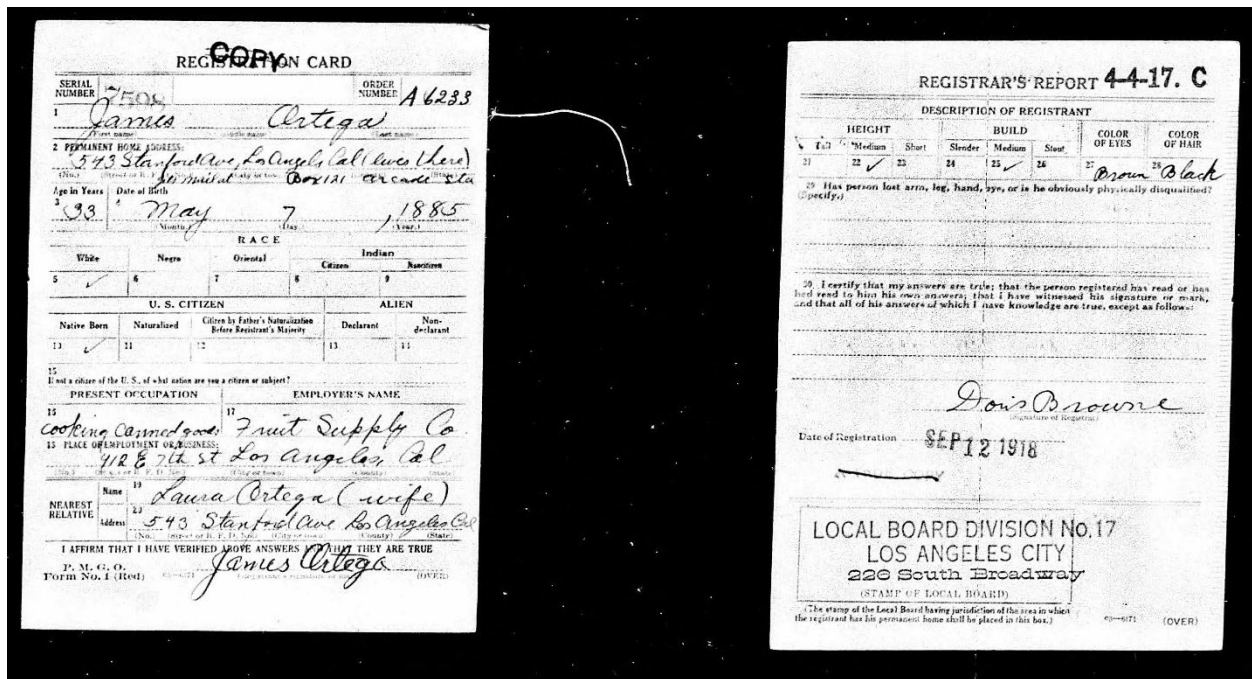 COPY
REGISTRATION CARD
SERIAL NUMBER 7598 ORDER NUMBER A 6233
1 James Ortega
(First name) (Middle name) (Last name)
2 PERMANENT HOME ADDRESS:
543 Stanford Ave, Los Angeles Cal (lives there)
(No.) (Street or R. F. D. No.) (City or town) (State)
mail at Box 121 arcade Sta
Age in Years Date of Birth
3 33 4 May 7, 1885
(Month.) (Day.) (Year.)
RACE
White Negro Oriental Indian
Citizen Noncitizen
5 ✓ 6 7 8 9
U. S. CITIZEN ALIEN
Native Born Naturalized Citizen by Father's Naturalization Before Registrant's Majority Declarant Non-declarant
10 ✓ 11 12 13 14
15
If not a citizen of the U. S., of what nation are you a citizen or subject?
PRESENT OCCUPATION EMPLOYER'S NAME
16 cooking canned goods 17 Fruit Supply Co
18 PLACE OF EMPLOYMENT OR BUSINESS:
912 E 7th St Los Angeles, Cal
(No.) (Street or R. F. D. No.) (City or town) (County) (State)
NEAREST RELATIVE
Name 19 Laura Ortega (wife)
Address 20 543 Stanford Ave Los Angeles Cal
(No.) (Street or R. F. D. No.) (City or town) (County) (State)
I AFFIRM THAT I HAVE VERIFIED ABOVE ANSWERS AND THAT THEY ARE TRUE
P. M. G. O.
Form No. 1 (Red) 03—6171 James Ortega (OVER)
REGISTRAR'S REPORT 4-4-17. C
DESCRIPTION OF REGISTRANT
HEIGHT BUILD COLOR OF EYES COLOR OF HAIR
Tall Medium Short Slender Medium Stout
21 22 ✓ 23 24 25 ✓ 26 27 Brown 28 Black
29 Has person lost arm, leg, hand, eye, or is he obviously physically disqualified?
(Specify.)
30 I certify that my answers are true; that the person registered has read or has
had read to him his own answers; that I have witnessed his signature or mark,
and that all of his answers of which I have knowledge are true, except as follows:
Doris Browne
(Signature of Registrar)
Date of Registration SEP 12 1918
LOCAL BOARD DIVISION No. 17
LOS ANGELES CITY
226 South Broadway
(STAMP OF LOCAL BOARD)
(The stamp of the Local Board having jurisdiction of the area in which
the registrant has his permanent home shall be placed in this box.) 03—6171 (OVER)